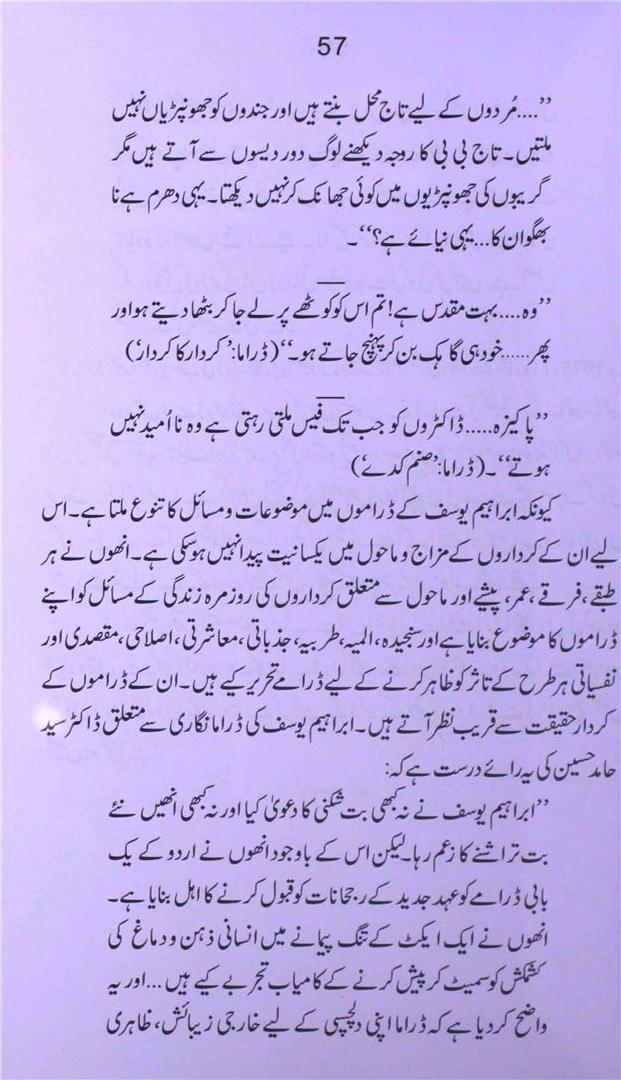 57
”....مُردوں کے لیے تاج محل بنتے ہیں اور جندوں کو جھونپڑیاں نہیں
ملتیں۔ تاج بی بی کا روجہ دیکھنے لوگ دور دیسوں سے آتے ہیں مگر
گریبوں کی جھونپڑیوں میں کوئی جھانک کر نہیں دیکھتا۔ یہی دھرم ہے نا
بھگوان کا...یہی نیائے ہے؟“۔
”وہ....بہت مقدس ہے! تم اس کو کوٹھے پر لے جا کر بٹھا دیتے ہو اور
پھر.....خود ہی گاہک بن کر پہنچ جاتے ہو۔“ (ڈراما:’کردار کا کردار‘)
”پاکیزہ.....ڈاکٹروں کو جب تک فیس ملتی رہتی ہے وہ نا اُمید نہیں
ہوتے“۔ (ڈراما:’صنم کدے‘)
کیونکہ ابراہیم یوسف کے ڈراموں میں موضوعات و مسائل کا تنوع ملتا ہے۔ اس
لیے ان کے کرداروں کے مزاج و ماحول میں یکسانیت پیدا نہیں ہو سکی ہے۔ انھوں نے ہر
طبقے، فرقے، عمر، پیشے اور ماحول سے متعلق کرداروں کی روزمرہ زندگی کے مسائل کو اپنے
ڈراموں کا موضوع بنایا ہے اور سنجیدہ، المیہ، طربیہ، جذباتی، معاشرتی، اصلاحی، مقصدی اور
نفسیاتی ہر طرح کے تاثر کو ظاہر کرنے کے لیے ڈرامے تحریر کیے ہیں۔ ان کے ڈراموں کے
کردار حقیقت سے قریب نظر آتے ہیں۔ ابراہیم یوسف کی ڈراما نگاری سے متعلق ڈاکٹر سید
حامد حسین کی یہ رائے درست ہے کہ:
”ابراہیم یوسف نے نہ کبھی بت شکنی کا دعویٰ کیا اور نہ کبھی انھیں نئے
بت تراشنے کا زعم رہا۔ لیکن اس کے باوجود انھوں نے اردو کے یک
بابی ڈرامے کو عہد جدید کے رجحانات کو قبول کرنے کا اہل بنایا ہے۔
انھوں نے ایک ایکٹ کے تنگ پیمانے میں انسانی ذہن و دماغ کی
کشمکش کو سمیٹ کر پیش کرنے کے کامیاب تجربے کیے ہیں...اور یہ
واضح کر دیا ہے کہ ڈراما اپنی دلچسپی کے لیے خارجی زیبائش، ظاہری